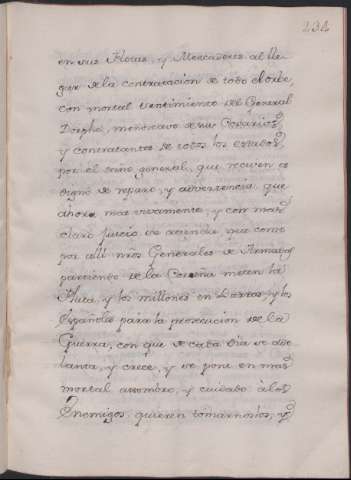 232
en sus Flotas, y Mercaderes al lle
gar de la contratacion de todo el orbe,
con mortal sentimiento del General
Draghe, menoscavo de sus Cosarios,
y contratantes de todos los estados,
por el daño general, que reciven es
digno de reparo, y advertencia que
ahora mas vivamente, y con mas
claro juicio se atienda, que como
por alli nros Generales de Armadas
partiendo de la Coruña meten la
Plata, y los millones en y los
Españoles para la prosecucion de la
Guerra, con que se cada dia se ade
lanta, y crece, y se pone en mas
mortal assombro, y cuidado à los
Enemigos quieren tomarnoslos, y